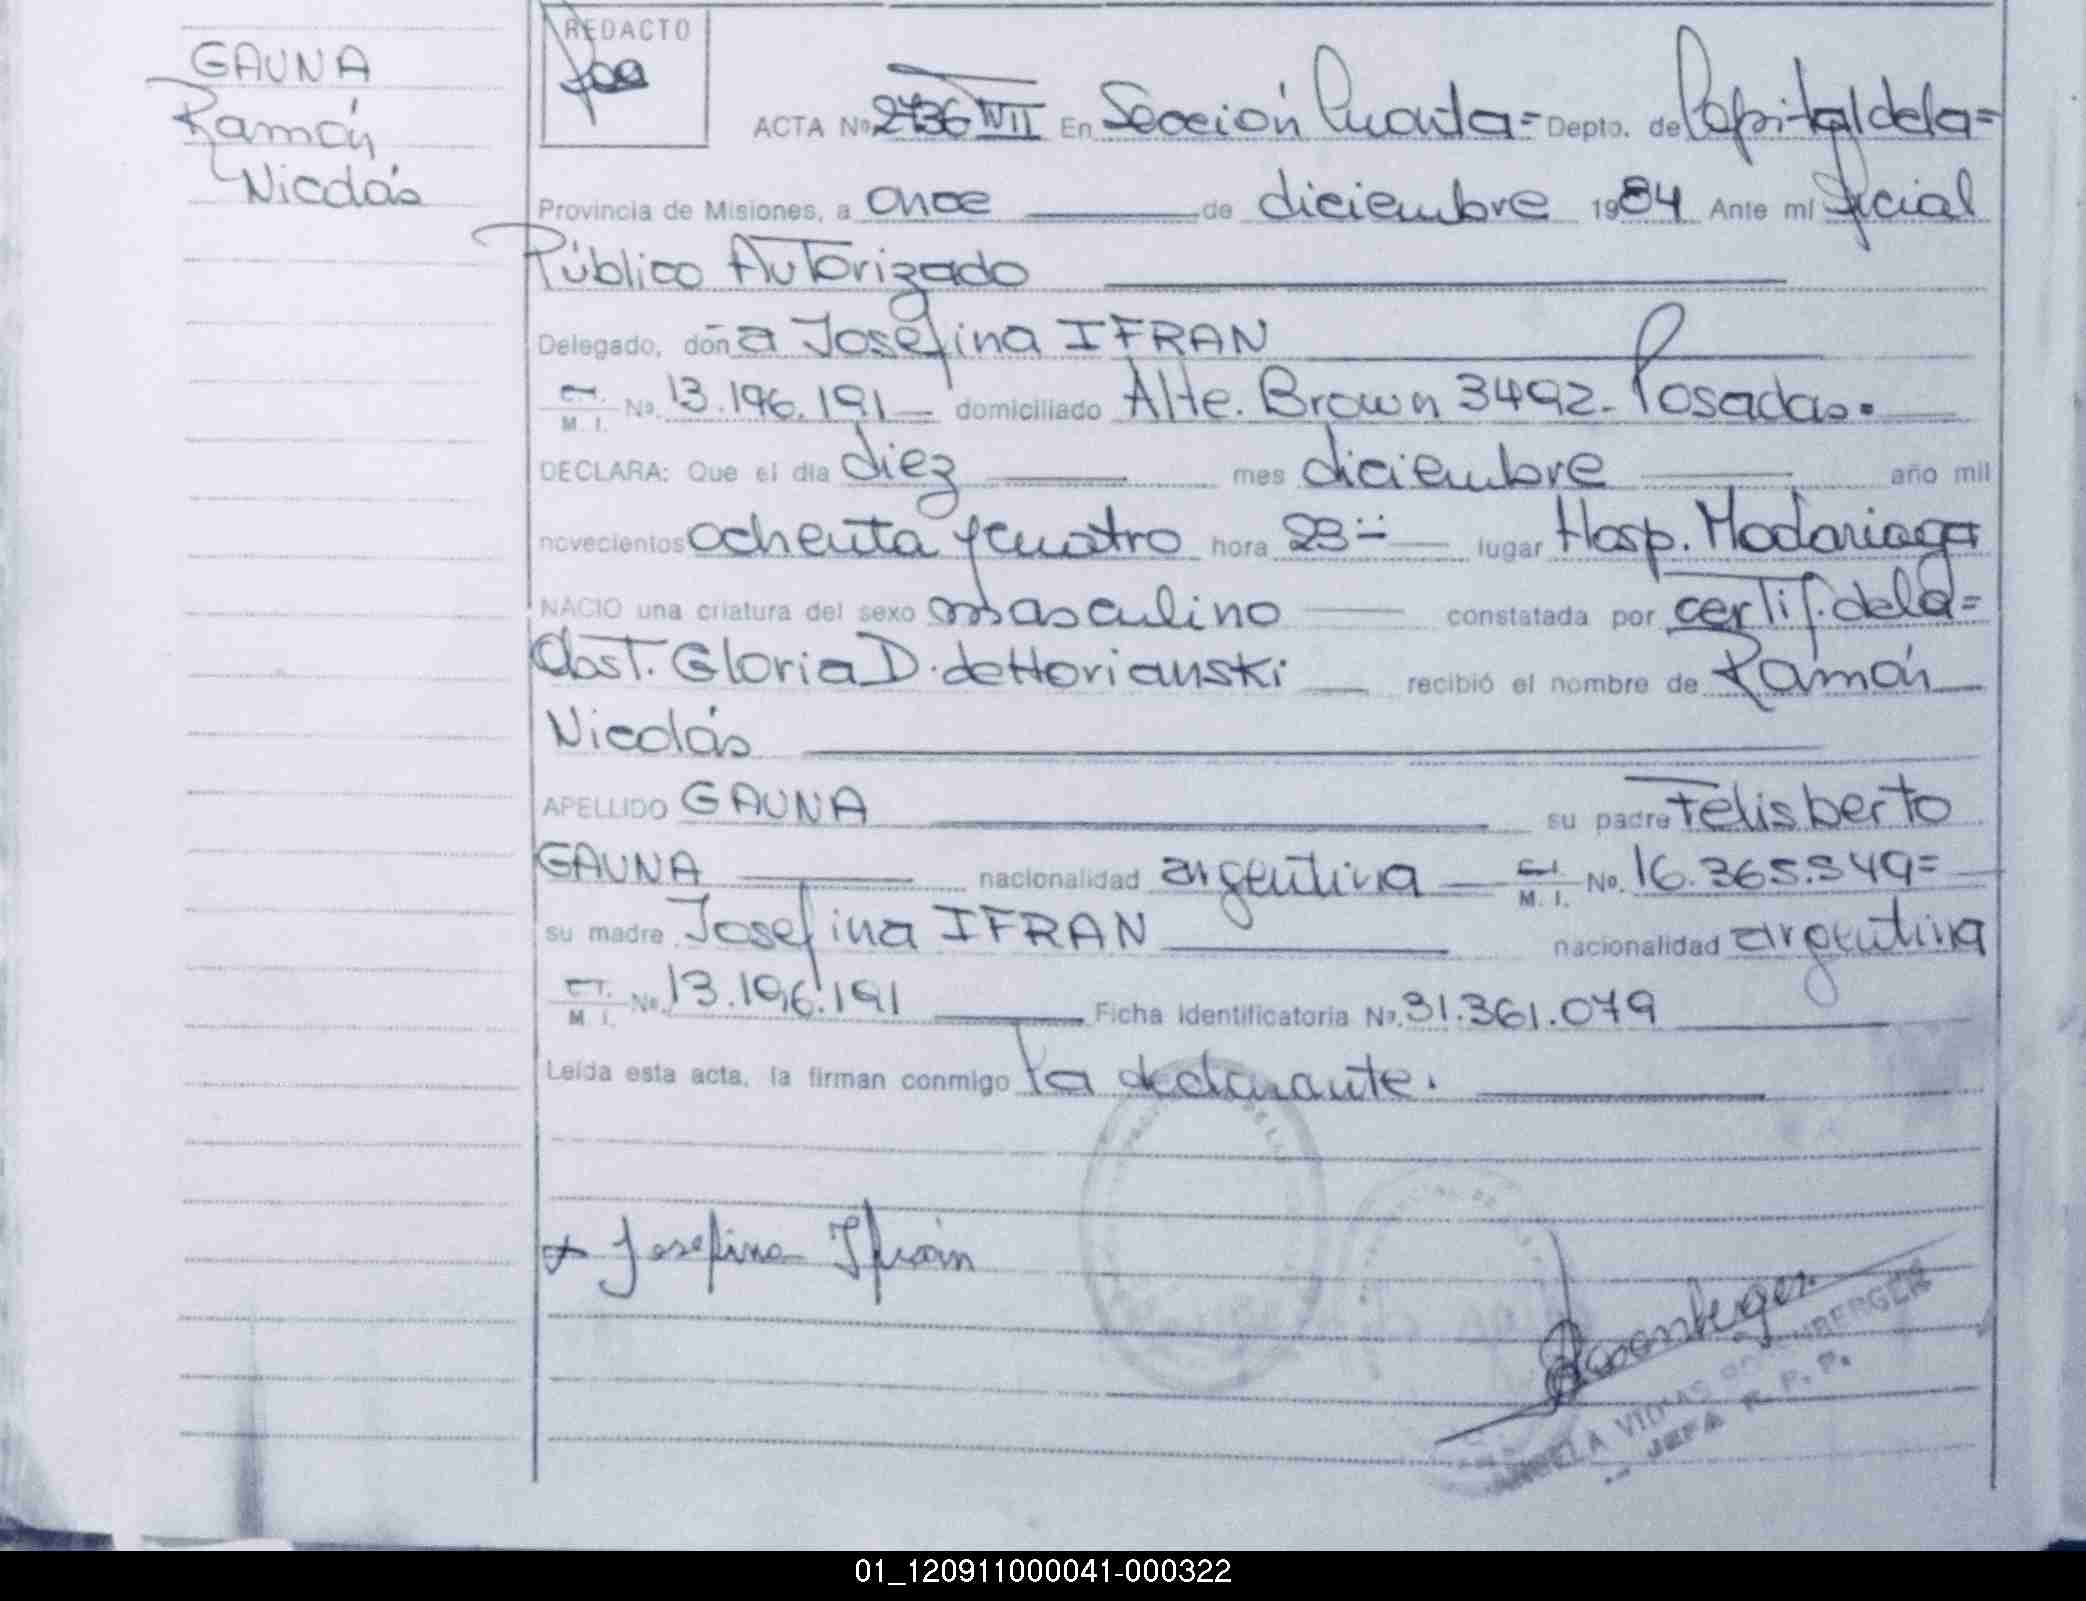 GAUNA
Ramón
Nicolás
REDACTO
ACTA Nº 2736 VII En Sección Cuarta = Depto. de Capital de la =
Provincia de Misiones, a once de diciembre 1984 Ante mí Oficial
Público Autorizado
Delegado, doña Josefina IFRAN
C.I. M. I. Nº 13.196.191 domiciliado Alte. Brown 3492. Posadas.
DECLARA: Que el día diez mes diciembre año mil
novecientos ochenta y cuatro hora 23 lugar Hosp. Madariaga
NACIO una criatura del sexo masculino constatada por certif. de la =
Obst. Gloria D. de Horianski recibió el nombre de Ramón
Nicolás
APELLIDO GAUNA su padre Felisberto
GAUNA nacionalidad argentina C.I. M. I. Nº 16.365.549 =
su madre Josefina IFRAN nacionalidad argentina
C.I. M. I. Nº 13.196.191 Ficha Identificatoria Nº 31.361.079
Leída esta acta, la firman conmigo la declarante.
Josefina Ifrán
Rosenberger
ROSENBERGER
JEFA R. P. P.
01_120911000041-000322